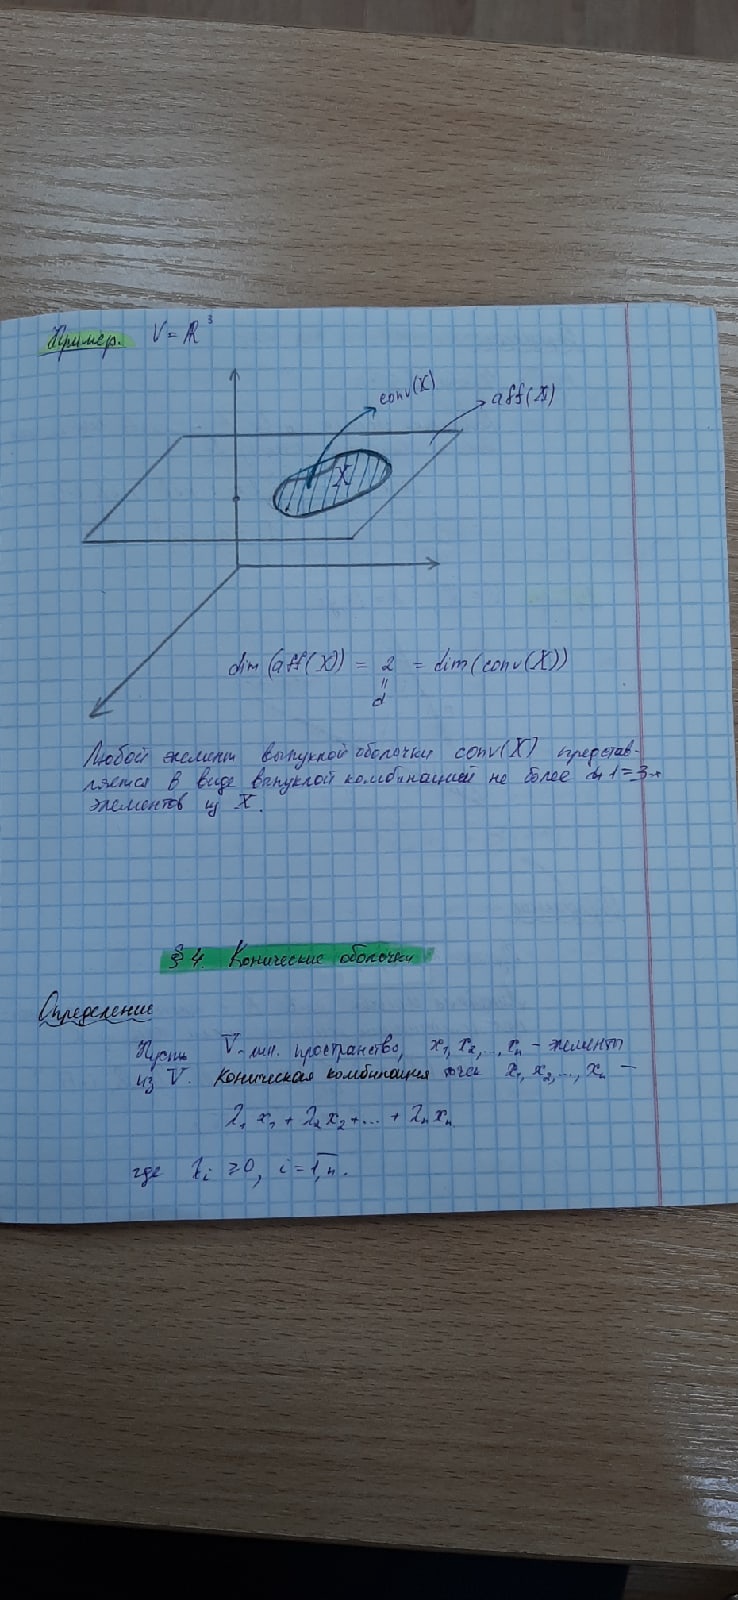 Пример. V = ℝ³
conv(X)
aff(X)
X
dim(aff(X)) = 2 = dim(conv(X))
=
d
Любой элемент выпуклой оболочки conv(X) представ-
ляется в виде выпуклой комбинацией не более d+1=3х
элементов из X.
§ 4. Конические оболочки
Определение
Пусть V - лин. пространство, x₁, x₂, ..., xₙ - элементы
из V. Коническая комбинация точек x₁, x₂, ..., xₙ –
λ₁x₁ + λ₂x₂ + ... + λₙxₙ
где λᵢ ≥ 0, i = 1,n.